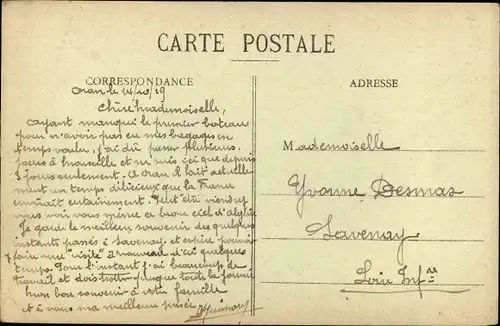 CARTE POSTALE
CORRESPONDANCE
ADRESSE
Oran le 14/10/19
Chère Mademoiselle,
Ayant manqué le premier bateau
pour n'avoir pas eu mes bagages en
temps voulu, j'ai dû passer plusieurs
jours à et ne suis ici que depuis
3 jours seulement. A Oran il fait actuelle
ment un temps délicieux que la France
envierait certainement. Peut être viendrez
vous voir vous même ce beau ciel d'Algérie
Je garde le meilleur souvenir des quelques
instants passés à Savenay et espère pouvoir
faire une "visite" à nouveau d'ici quelques
temps. Pour l'instant j'ai beaucoup de
travail et dois presque toute la journée
mon bon souvenir à votre famille
et à vous ma meilleure pensée
Mademoiselle
Yvonne Desmas
Savenay
Loire Infre